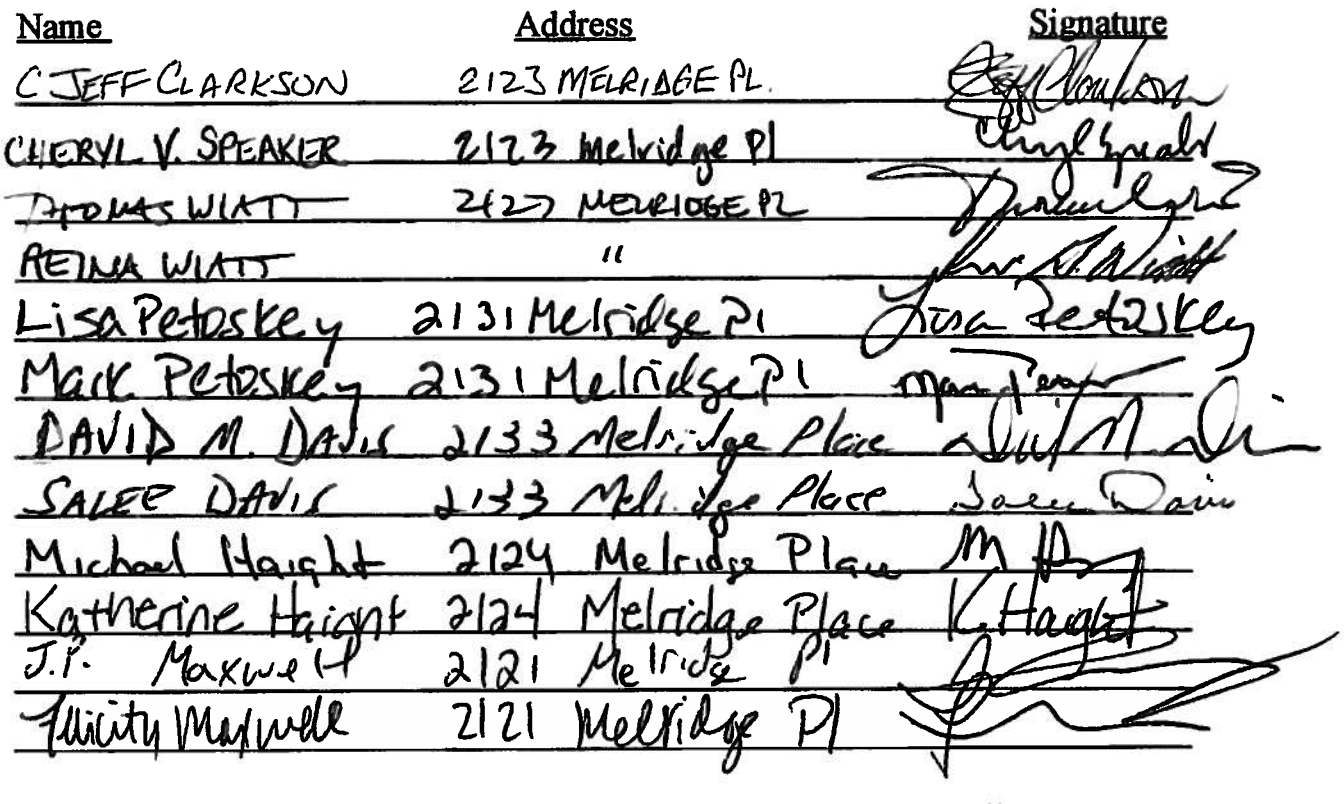 Name Address Signature
C JEFF CLARKSON 2123 MELRIDGE PL. Jeff Clarkson
CHERYL V. SPEAKER 2123 Melridge Pl Cheryl Speaker
THOMAS WIATT 2127 MELRIDGE PL
REINA WIATT " Wiatt
Lisa Petoskey 2131 Melridge Pl Lisa Petoskey
Mark Petoskey 2131 Melridge Pl
DAVID M. DAVIS 2133 Melridge Place David M. Davis
SALEE DAVIS 2133 Melridge Place Salee Davis
Michael Haight 2124 Melridge Place M
Katherine Haight 2124 Melridge Place K. Haight
J.P. Maxwell 2121 Melridge Pl
Felicity Maxwell 2121 Melridge Pl